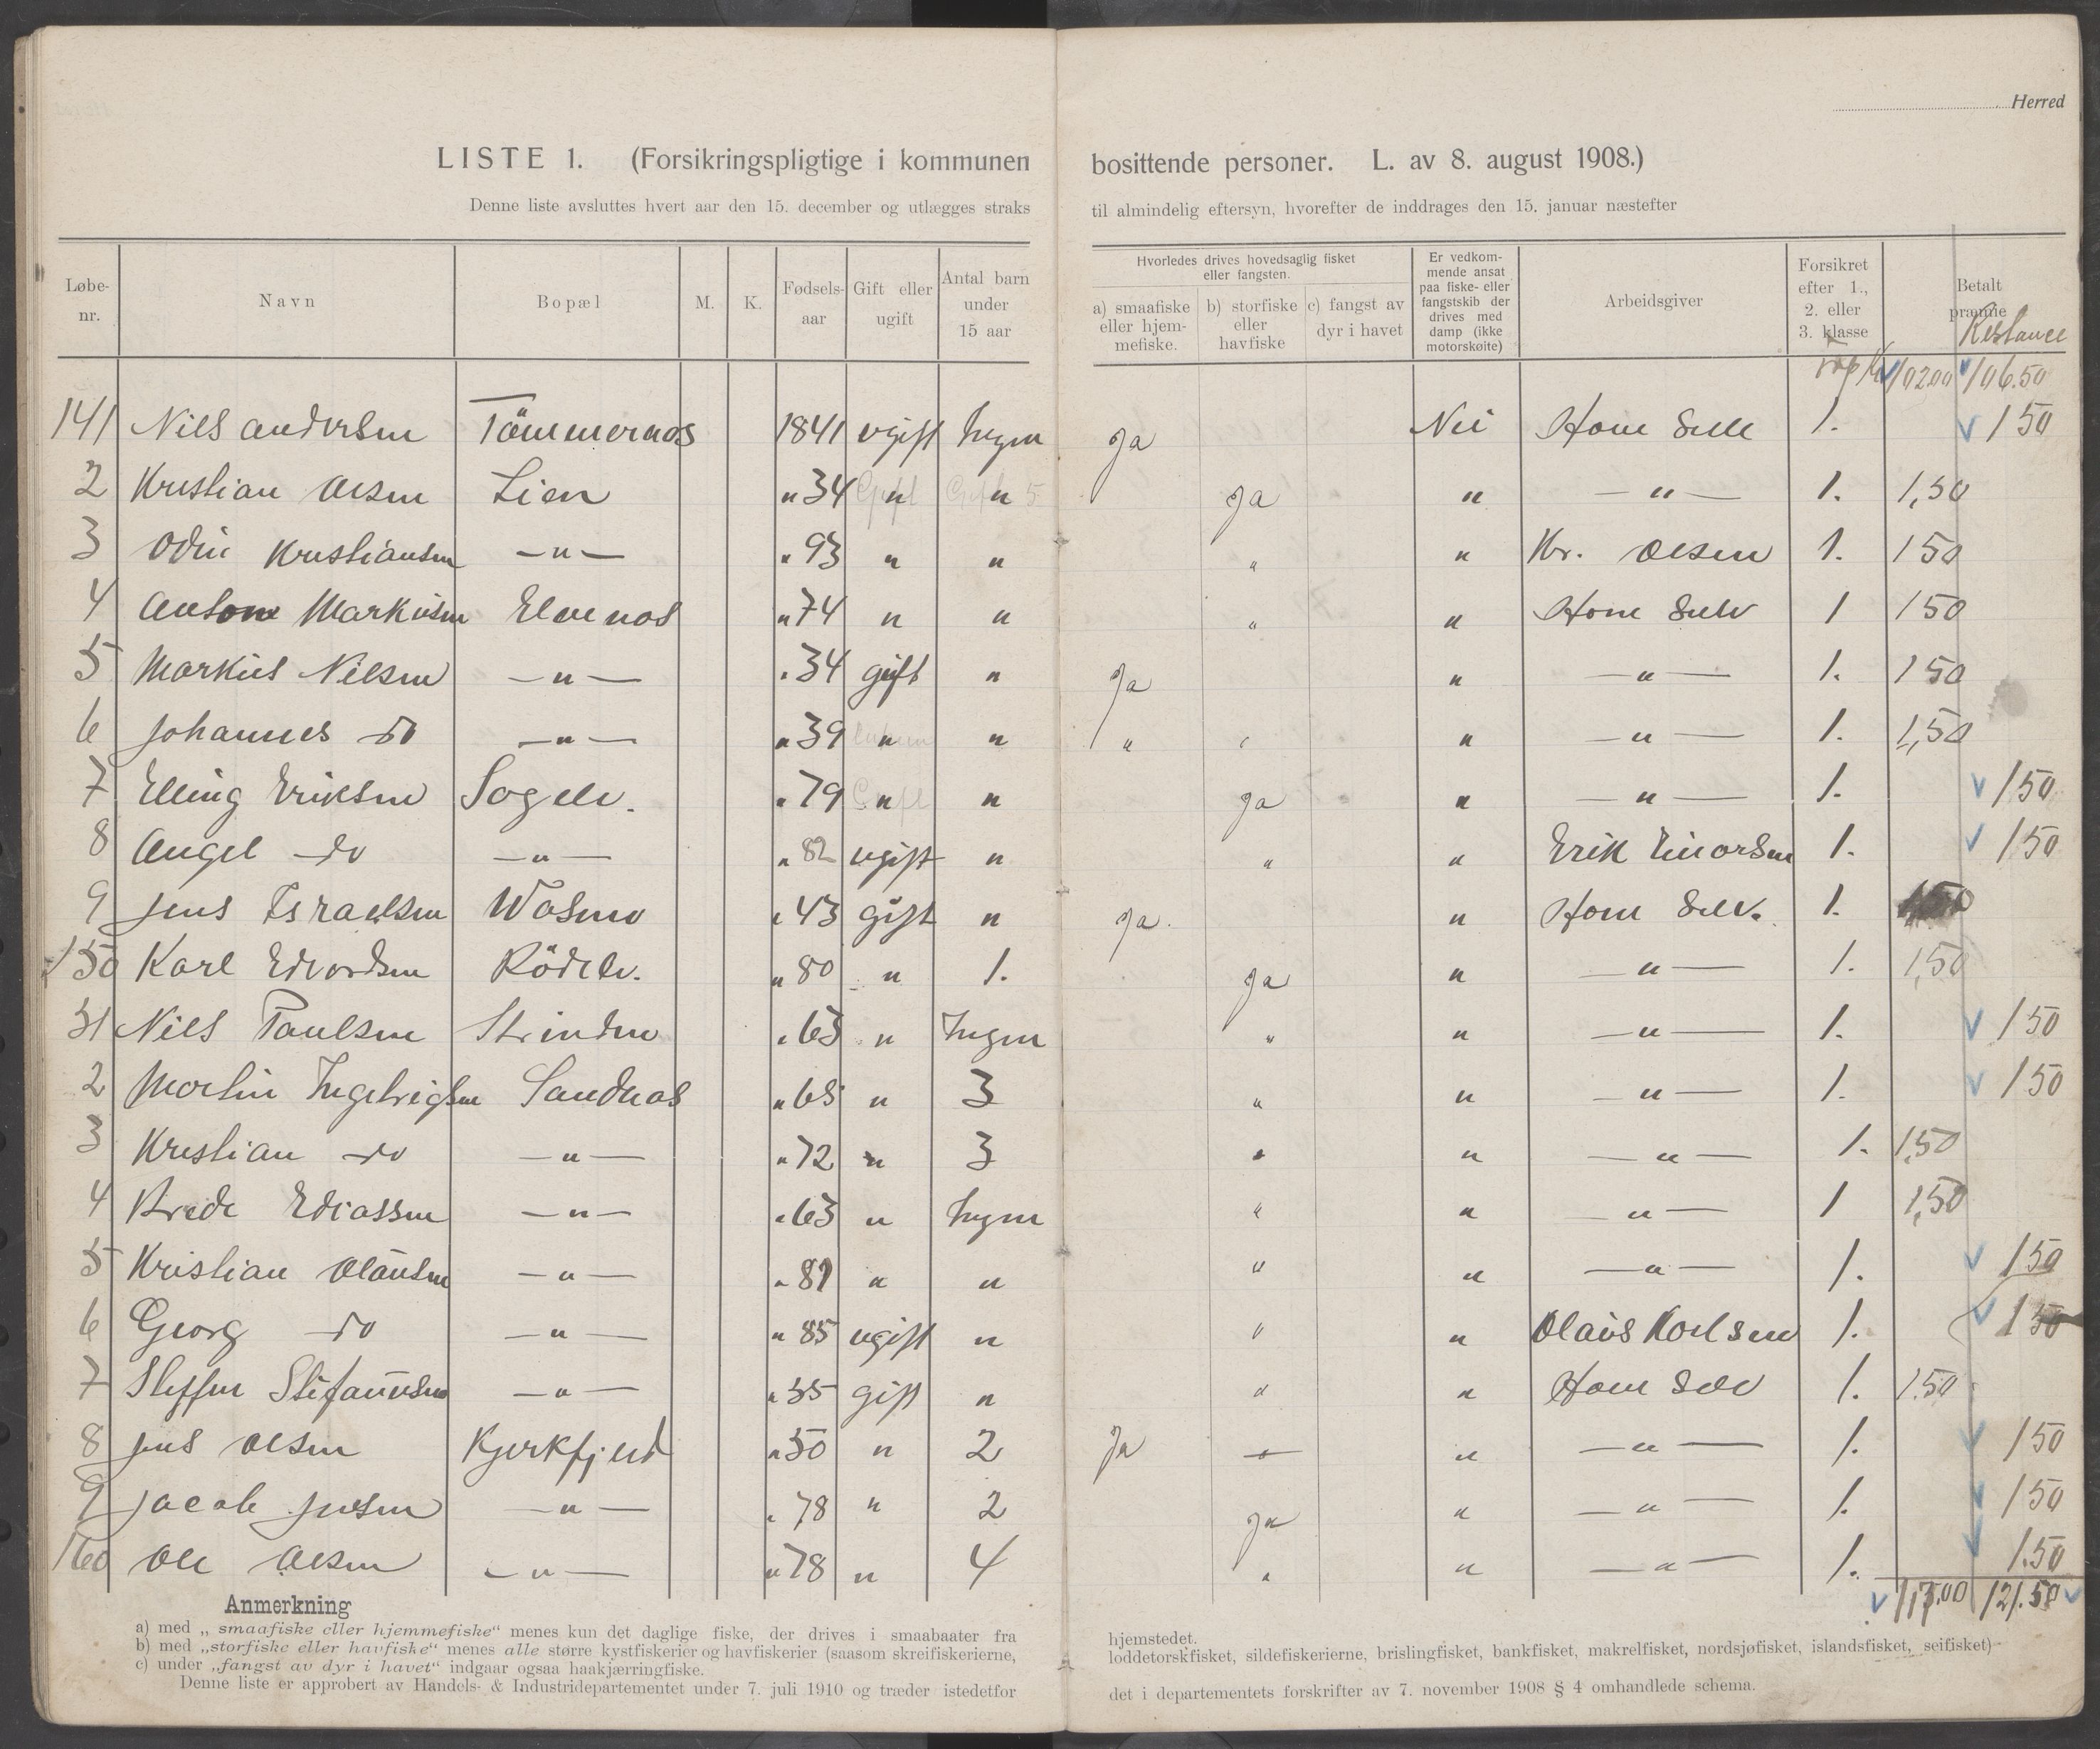 Herred
LISTE 1. (Forsikringspligtige i kommunen bosittende personer. L. av 8. august 1908.)
Denne liste avsluttes hvert aar den 15. december og utlægges straks til almindelig eftersyn, hvorefter de inddrages den 15. januar næstefter
Løbe-nr. Navn Bopæl M. K. Fødsels-aar Gift eller ugift Antal barn under 15 aar Hvorledes drives hovedsaglig fisket eller fangsten. a) smaafiske eller hjem-mefiske. b) storfiske eller havfiske c) fangst av dyr i havet Er vedkom-mende ansat paa fiske- eller fangstskib der drives med damp (ikke motorskøite) Arbeidsgiver Forsikret efter 1., 2. eller 3. klasse Betalt præmie Restance
10200 106.50
141 Nils Andersen Tömmernos 1841 ugift Ingen Ja Nei Ham Selv 1. 150
2 Kristian Olsen Lien " 34 " " Ja " — " — 1. 1,50
3 Odin Kristiansen — " — " 93 " " " " Kr. Olsen 1. 150
4 Anton Markusen Elvenos " 74 " " " " Ham Selv 1 150
5 Markus Nilsen — " — " 34 gift " Ja " — " — 1. 150
6 Johannes do — " — " 39 " " " " " — " — 1. 1,50
7 Elling Eriksen Sagelv. " 79 " " Ja " — " — 1. 150
8 Angel do — " — " 82 ugift " " " Erik Einorsen 1. 150
9 Jens Israelsen Wasmo " 43 gift " Ja. " Ham Selv. 1. 150
150 Karl Edvardsen Rödelv. " 80 " 1. Ja " — " — 1. 1,50
51 Nils Paulsen Strinden " 63 " Ingen " " — " — 1. 150
2 Martin Ingebrigtsen Sandnos " 68 " 3 " " — " — 1. 150
3 Kristian do — " — " 72 " 3 " " — " — 1. 1,50
4 Brede Ediassen — " — " 63 " Ingen " " — " — 1 1,50
5 Kristian Olausen — " — " 81 " " " " — " — 1. 150
6 Georg do — " — " 85 ugift " " " Olaus Karlsen 1. 150
7 Steffen Stefanusen — " — " 35 gift " " " Ham Selv 1. 1.50
8 Jens Olsen Kjerkfjord " 50 " 2 Ja " — " — 1. 150
9 Jacob Jensen — " — " 78 " 2 Ja " — " — 1. 150
160 Ole Olsen — " — " 78 " 4 " " — " — 1. 1.50
117.00 121.50
Anmerkning
a) med „smaafiske eller hjemmefiske“ menes kun det daglige fiske, der drives i smaabaater fra hjemstedet.
b) med „storfiske eller havfiske“ menes alle større kystfiskerier og havfiskerier (saasom skreifiskerierne, loddetorskfisket, sildefiskerierne, brislingfisket, bankfisket, makrelfisket, nordsjøfisket, islandsfisket, seifisket)
c) under „fangst av dyr i havet“ indgaar ogsaa haakjærringfiske.
Denne liste er approbert av Handels- & Industridepartementet under 7. juli 1910 og træder istedetfor det i departementets forskrifter av 7. november 1908 § 4 omhandlede schema.